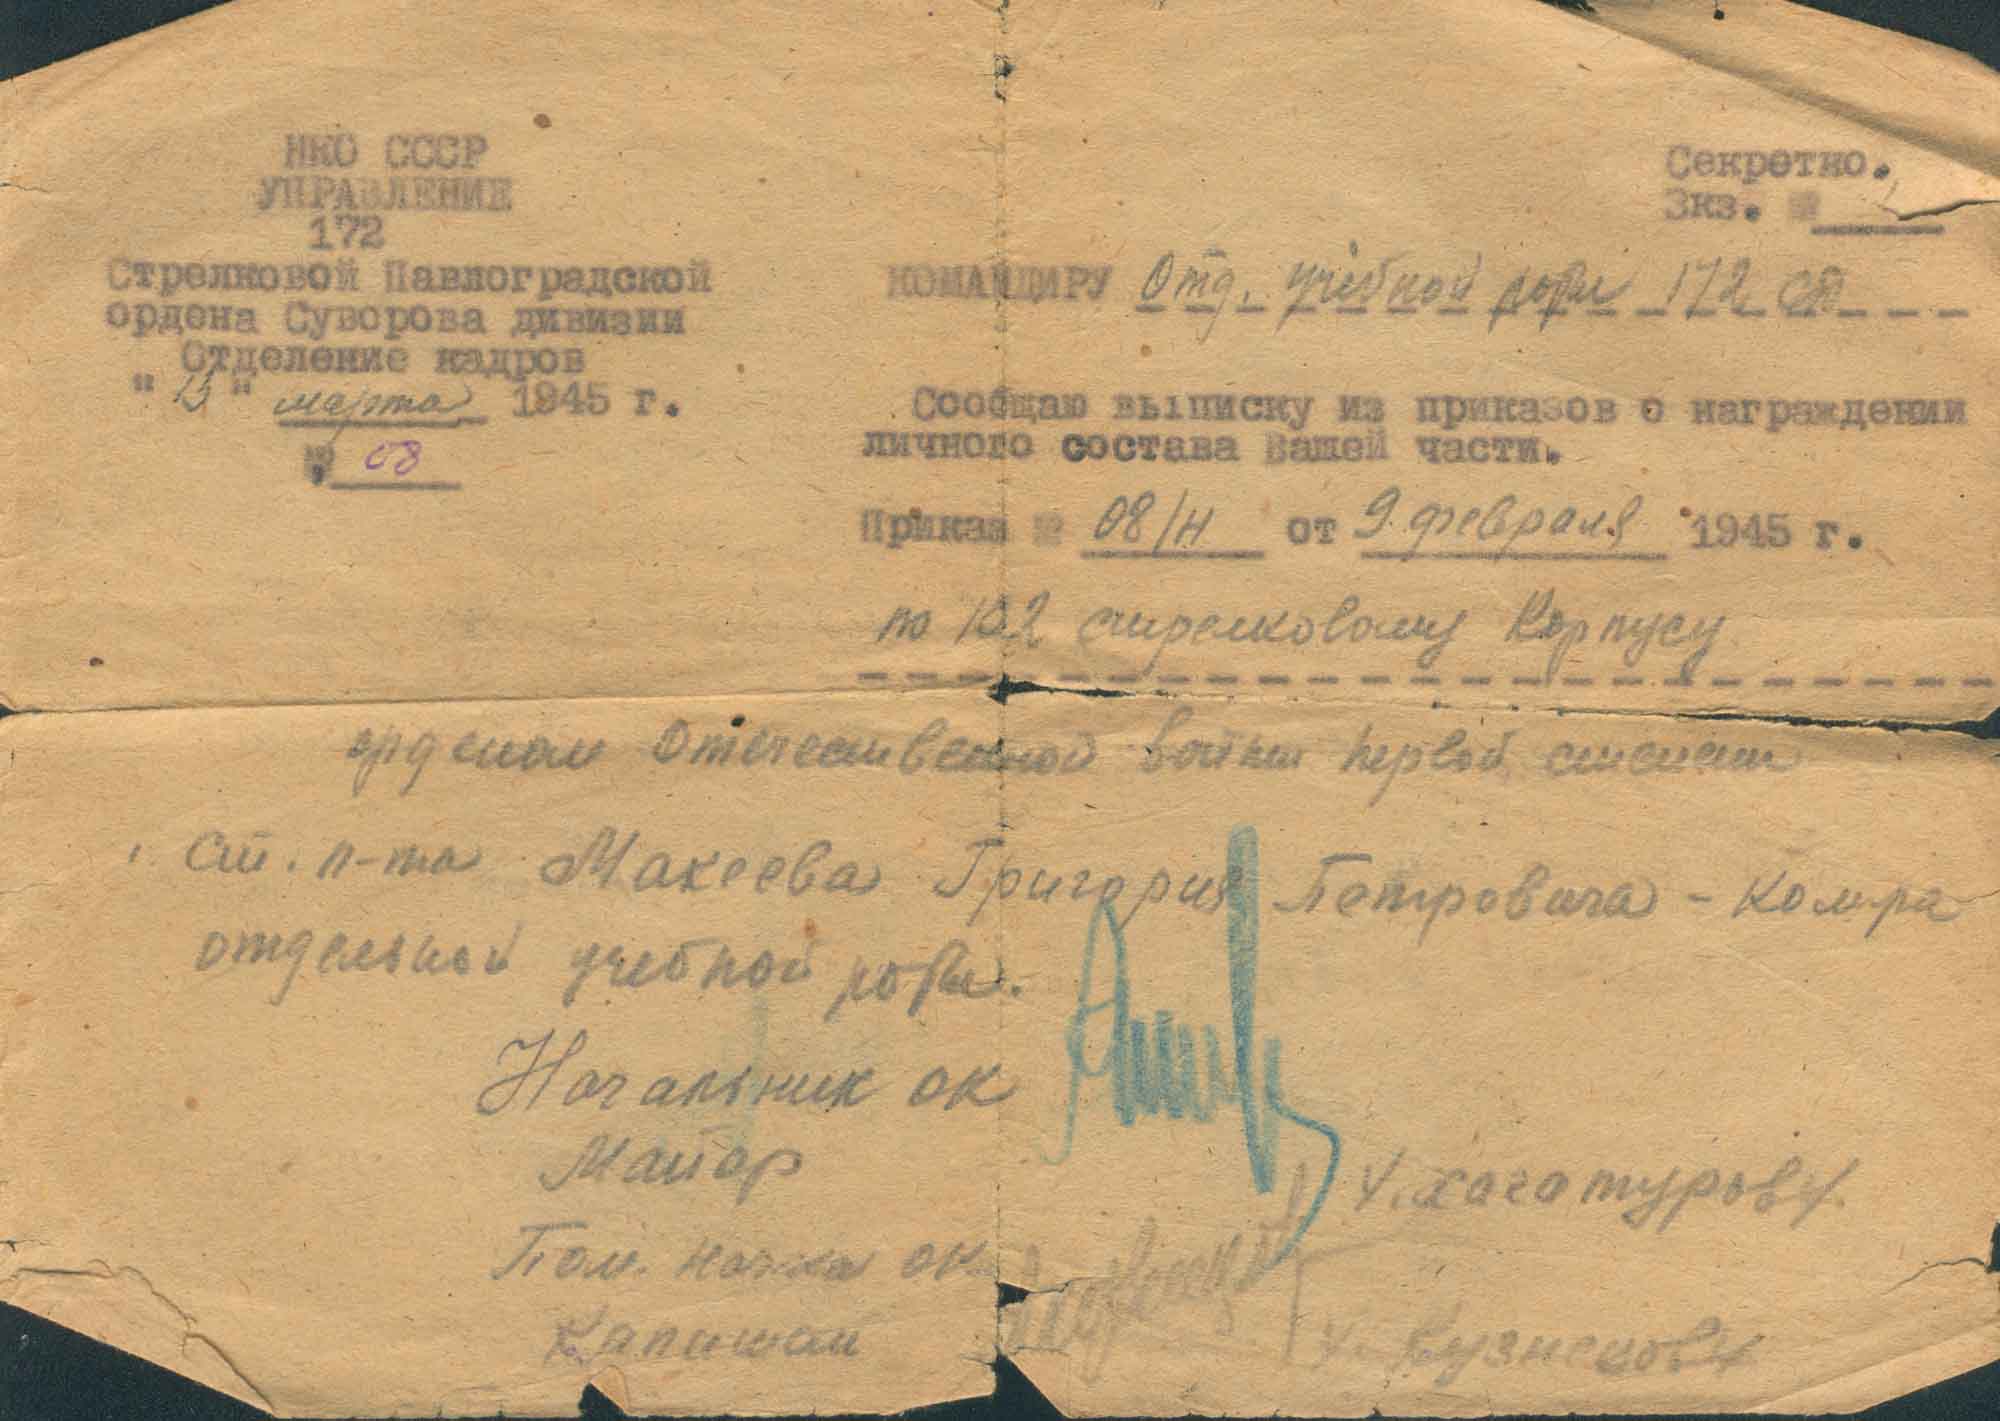 НКО СССР
УПРАВЛЕНИЕ
172
Стрелковой Павлоградской
ордена Суворова дивизии
Отделение кадров
" " марта 1945 г.
№ 08
Секретно.
Экз. №
КОМАНДИРУ Отд. учебной роты 172 сд
Сообщаю выписку из приказов о награждении
личного состава Вашей части.
Приказ № 08/н от 9 февраля 1945 г.
по 102 стрелковому Корпусу
орденом Отечественной войны первой степени
Ст. л-та Макеева Григория Петровича - Ком-ра
отдельной учебной роты.
Начальник ОК
Майор /Хачатуров/
Пом. нач-ка ОК
Капитан /Кузнецов/